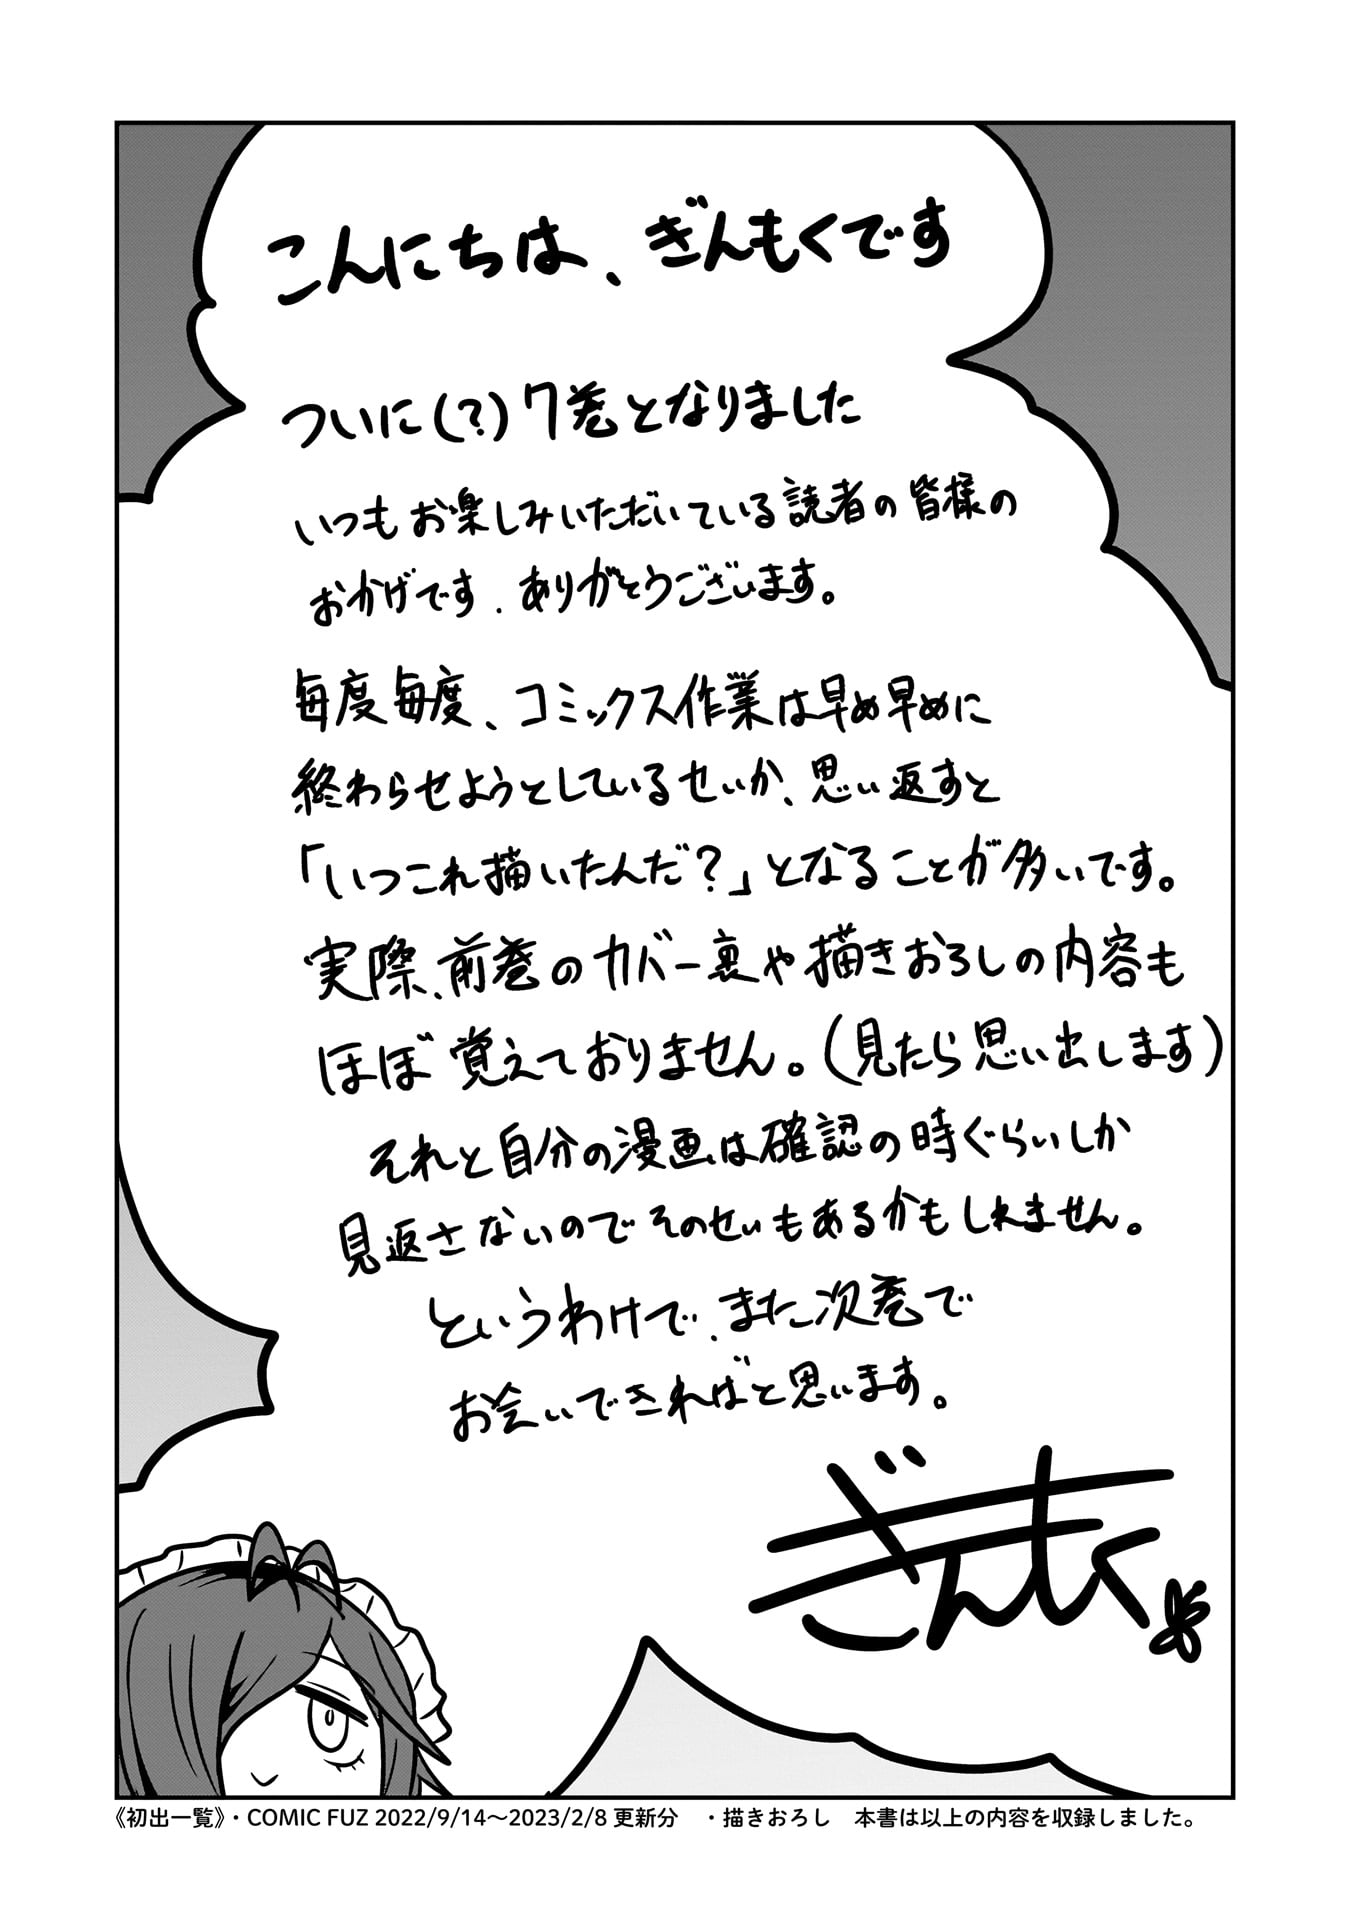 こんにちは、ぎんもくです
ついに(?)7巻となりました
いつもお楽しみいただいている読者の皆様の
おかげです、ありがとうございます。
毎度毎度、コミックス作業は早め早めに
終わらせようとしているせいか、思い返すと
「いつこれ描いたんだ?」となることが多いです。
実際、前巻のカバー裏や描きおろしの内容も
ほぼ覚えておりません。(見たら思い出します)
それと自分の漫画は確認の時ぐらいしか
見返さないのでそのせいもあるかもしれません。
というわけで、また次巻で
お会いできればと思います。
ぎんもく
《初出一覧》・COMIC FUZ 2022/9/14〜2023/2/8 更新分 ・描きおろし 本書は以上の内容を収録しました。